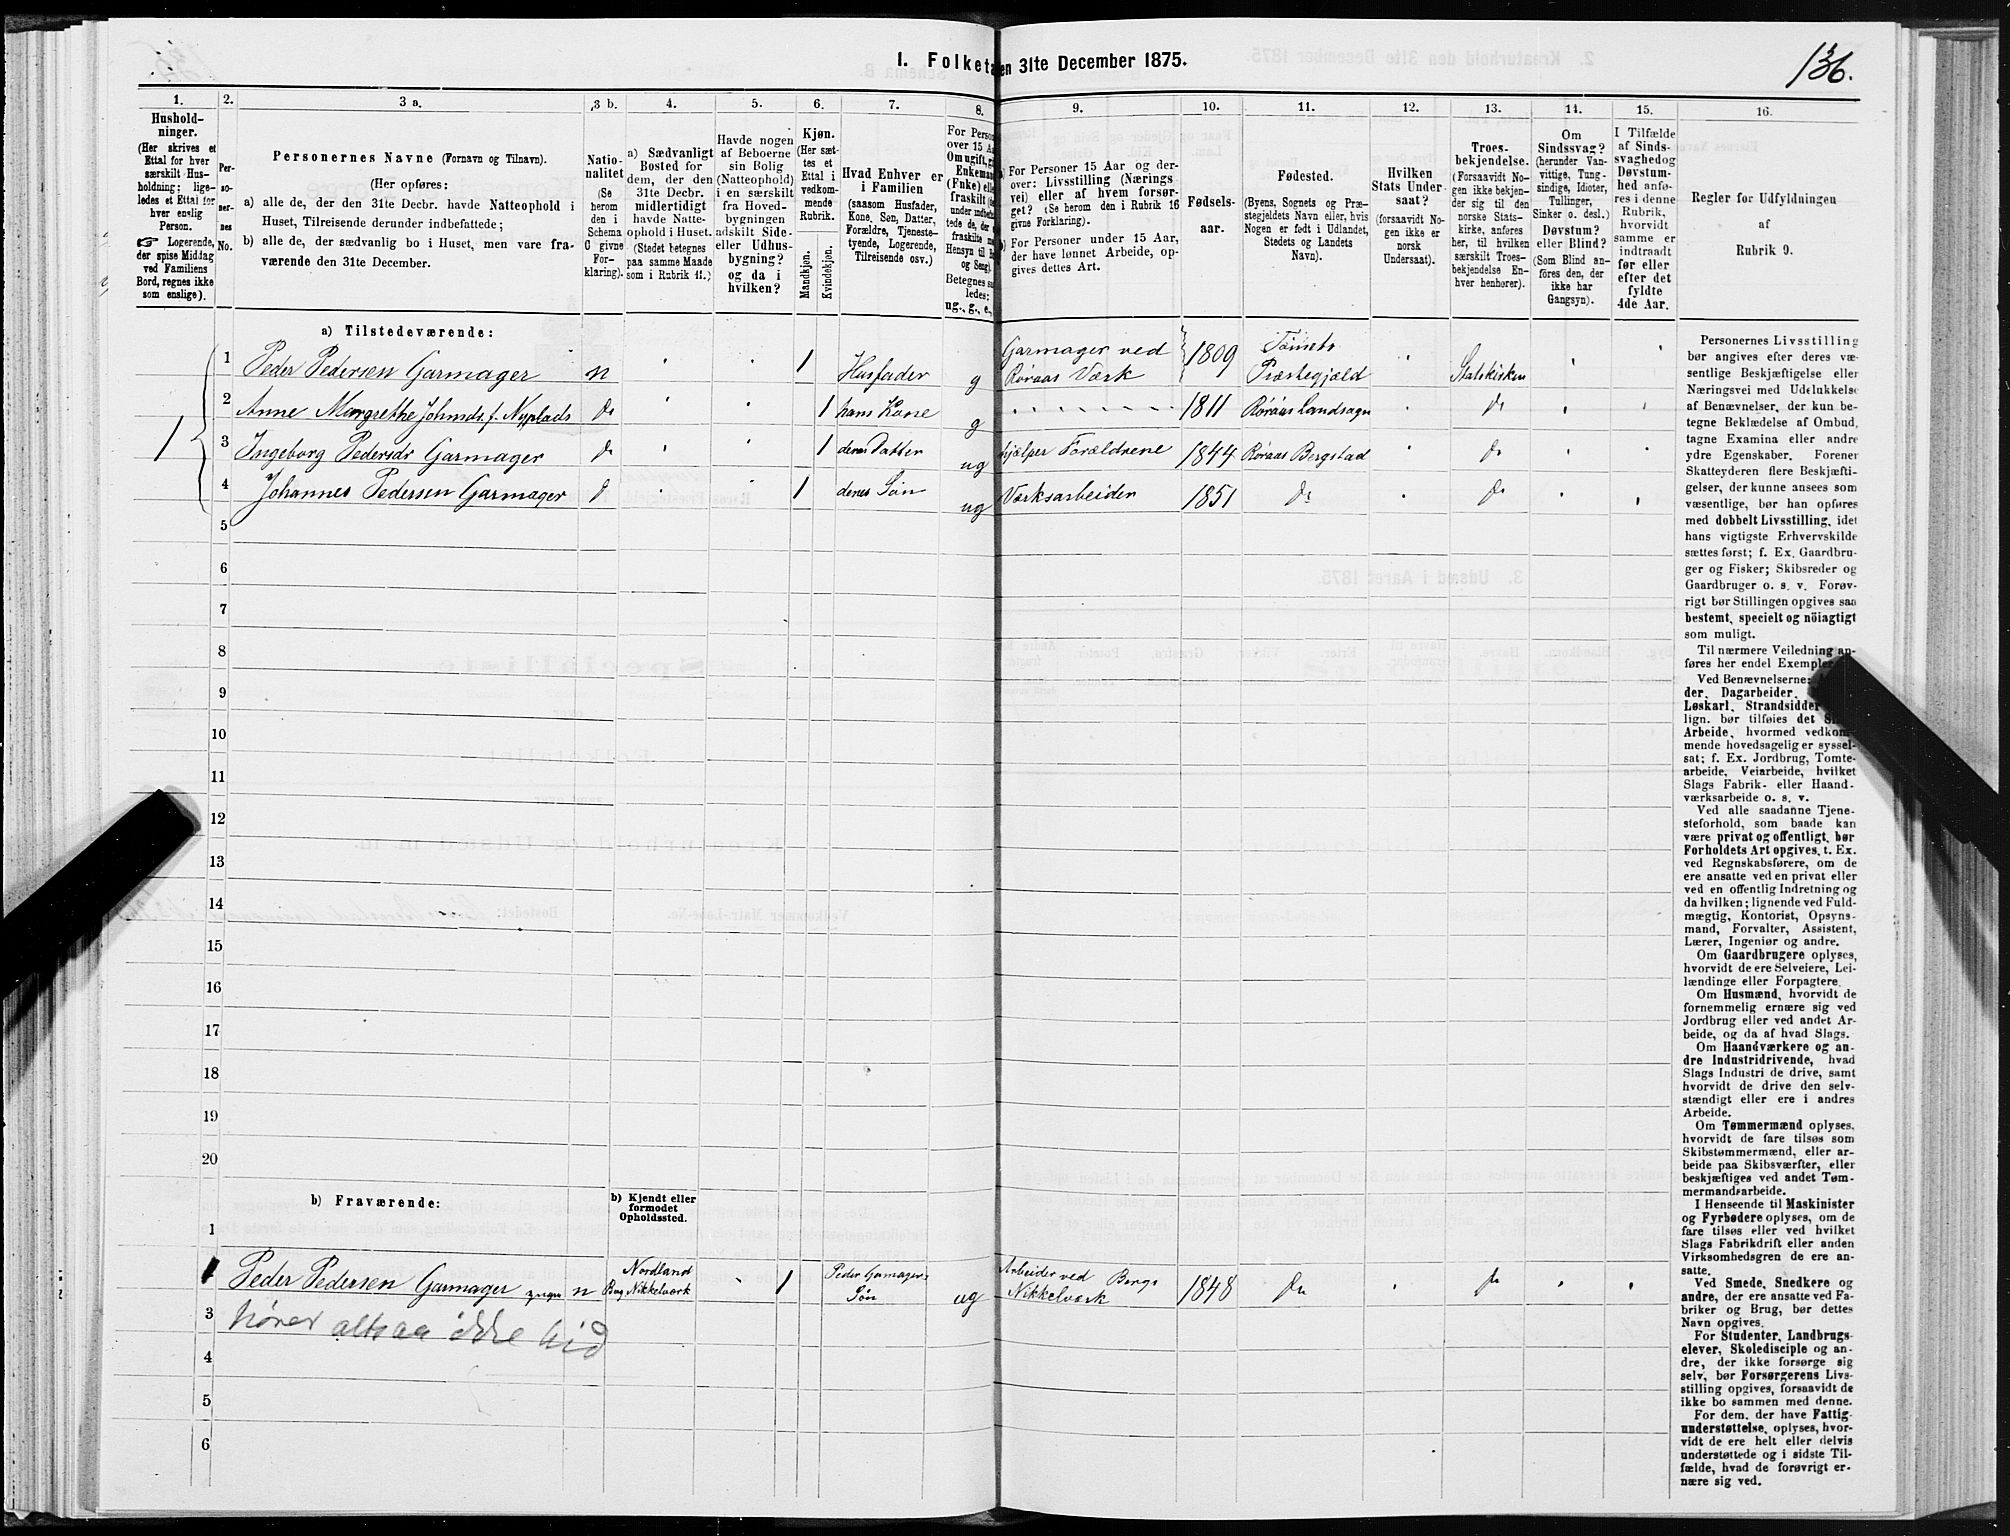 1. Folketa en 31te December 1875.
136.
1.
2.
3 a.
3 b.
4.
5.
6.
7.
8.
9.
10.
11.
12.
13.
14.
15.
16.
Hushold-
ninger.
(Her skrives et
Ettal for hver
særskilt Hus-
holdning; lige-
ledes et Ettal for
hver enslig
Person.
☞ Logerende,
der spise Middag
ved Familiens
Bord, regnes ikke
som enslige).
Per-
so-
ner-
nes
No.
Personernes Navne (Fornavn og Tilnavn).
(Her opføres:
a) alle de, der den 31te Decbr. havde Natteophold i
Huset, Tilreisende derunder indbefattede;
b) alle de, der sædvanlig bo i Huset, men vare fra-
værende den 31te December.
Natio-
nalitet
(Se
herom
den i
Schema
C givne
For-
klaring).
a) Sædvanligt
Bosted for
dem, der den
31te Decbr.
midlertidigt
havde Natte-
ophold i Huset.
(Stedet betegnes
paa samme Maade
som i Rubrik 11.)
Havde nogen
af Beboerne
sin Bolig
(Natteophold)
i en særskilt
fra Hoved-
bygningen
adskilt Side-
eller Udhus-
bygning?
og da i
hvilken?
Kjøn.
(Her sæt-
tes et
Ettal i
vedkom-
mende
Rubrik.
Mandkjøn.
Kvindekjøn.
Hvad Enhver er
i Familien
(saasom Husfader,
Kone, Søn, Datter,
Forældre, Tjeneste-
tyende, Logerende,
Tilreisende osv.)
For Person
over 15 Aa
Om ugift, gi
Enkeman
(Fnke) elle
fraskilt (s
under indbe
tede de, der
fraskilte m
Hensyn til B
og Seng).
Betegnes sa
ledes:
ug., g., e.,
a) For Personer 15 Aar og der-
over: Livsstilling (Nærings
vei) eller af hvem forsør-
get? (Se herom den i Rubrik 16
givne Forklaring).
b) For Personer under 15 Aar,
der have lønnet Arbeide, op-
gives dettes Art.
Fødsels-
aar.
Fødested.
(Byens, Sognets og Præ-
stegjeldets Navn eller, hvis
Nogen er født i Udlandet,
Stedets og Landets
Navn).
Hvilken
Stats Under-
saat?
(forsaavidt No-
gen ikke er
norsk
Undersaat).
Troes-
bekjendelse.
(Forsaavidt No-
gen ikke bekjen-
der sig til den
norske Stats-
kirke, anføres
her, til hvilken
særskilt Troes-
bekjendelse En-
hver henhører).
Om
Sindssvag?
(herunder Van-
vittige, Tung-
sindige, Idioter,
Tullinger,
Sinker o. desl.)
Døvstum?
eller Blind?
(Som Blind an-
føres den, der
ikke har
Gangsyn).
I Tilfælde
af Sinds-
svaghedog
Døvstum-
hed anfø-
res i denne
Rubrik,
hvorvidt
samme er
indtraadt
før eller
efter det
fyldte
4de Aar.
Regler for Udfyldningen
af
Rubrik 9.
a) Tilstedeværende:
1
1 Peder Pedersen Garmager n 1 Husfader g Garmager ved Røraas Værk 1809 Tønsets Præstegjæld Statskirken
2 Anne Margrethe Johnsdr. f. Nyplads do 1 hans Kone g 1811 Røraas Landsogn do
3 Ingeborg Pedersdr Garmager do 1 deres Datter ug hjælper Forældrene 1844 Røraas Bergstad do
4 Johannes Pedersen Garmager d 1 deres Søn ug Værksarbeider 1851 do do
5
6
7
8
9
10
11
12
13
14
15
16
17
18
19
20
b) Fraværende:
b) Kjendt eller
formodet
Opholdssted.
1
Peder Pedersen Garmager n Nordland Nikkelværk 1 Peder Garmagers Søn ug Arbeider ved Bergs Nikkelværk 1848 do do
3 hører altsaa ikke hid
4
5
6
Personernes Livsstilling
bør angives efter deres væ-
sentlige Beskjæftigelse eller
Næringsvei med Udelukkelse
af Benævnelser, der kun be-
tegne Beklædelse af Ombud,
tagne Examina eller andre
ydre Egenskaber. Forener
Skatteyderen flere Beskjæfti-
gelser, der kunne ansees som
væsentlige, bør han opføres
med dobbelt Livsstilling, idet
hans vigtigste Erhvervskilde
sættes først; f. Ex. Gaardbru-
ger og Fisker; Skibsreder og
Gaardbruger o. s. v. Forøv-
rigt bør Stillingen opgives saa
bestemt, specielt og nöiagtigt
som muligt.
Til nærmere Veiledning an-
føres her endel Exempler
Ved Benævnelserne:
der, Dagarbeider,
Løskarl, Strandsidder
lign. bør tilføies det
Arbeide, hvormed vedkom-
mende hovedsagelig er syssel-
sat; f. Ex. Jordbrug, Tomte-
arbeide, Veiarbeide, hvilket
Slags Fabrik- eller Haand-
værksarbeide o. s. v.
Ved alle saadanne Tjene-
steforhold, som baade kan
være privat og offentligt, bør
Forholdets Art opgives, t. Ex.
ved Regnskabsførere, om de
ere ansatte ved en privat eller
ved en offentlig Indretning og
da hvilken; lignende ved Fuld-
mægtig, Kontorist, Opsyns-
mand, Forvalter, Assistent,
Lærer, Ingeniør og andre.
Om Gaardbrugere oplyses,
hvorvidt de ere Selveiere, Lei-
lændinge eller Forpagtere.
Om Husmænd, hvorvidt de
fornemmelig ernære sig ved
Jordbrug eller ved andet Ar-
beide, og da af hvad Slags.
Om Haandværkere og an-
dre Industridrivende, hvad
Slags Industri de drive, samt
hvorvidt de drive den selv-
stændigt eller ere i andres
Arbeide.
Om Tømmermænd oplyses,
hvorvidt de fare tilsøs som
Skibstømmermænd, eller ar-
beide paa Skibsværfter, eller
beskjæftiges ved andet Tøm-
mermandsarbeide.
I Henseende til Maskinister
og Fyrbødere oplyses, om de
fare tilsøs eller ved hvilket
Slags Fabrikdrift eller anden
Virksomhedsgren de ere an-
satte.
Ved Smede, Snedkere og
andre, der ere ansatte ved Fa-
briker og Brug, bør dettes
Navn opgives.
For Studenter, Landbrugs-
elever, Skoledisciple og an-
dre, der ikke forsørge sig
selv, bør Forsørgerens Livs-
stilling opgives, forsaavidt de
ikke bo sammen med denne.
For dem, der have Fattig-
understøttelse, oplyses, hvor-
vidt de ere helt eller delvis
understøttede og i sidste Til-
fælde, hvad de forøvrigt er-
nære sig ved.